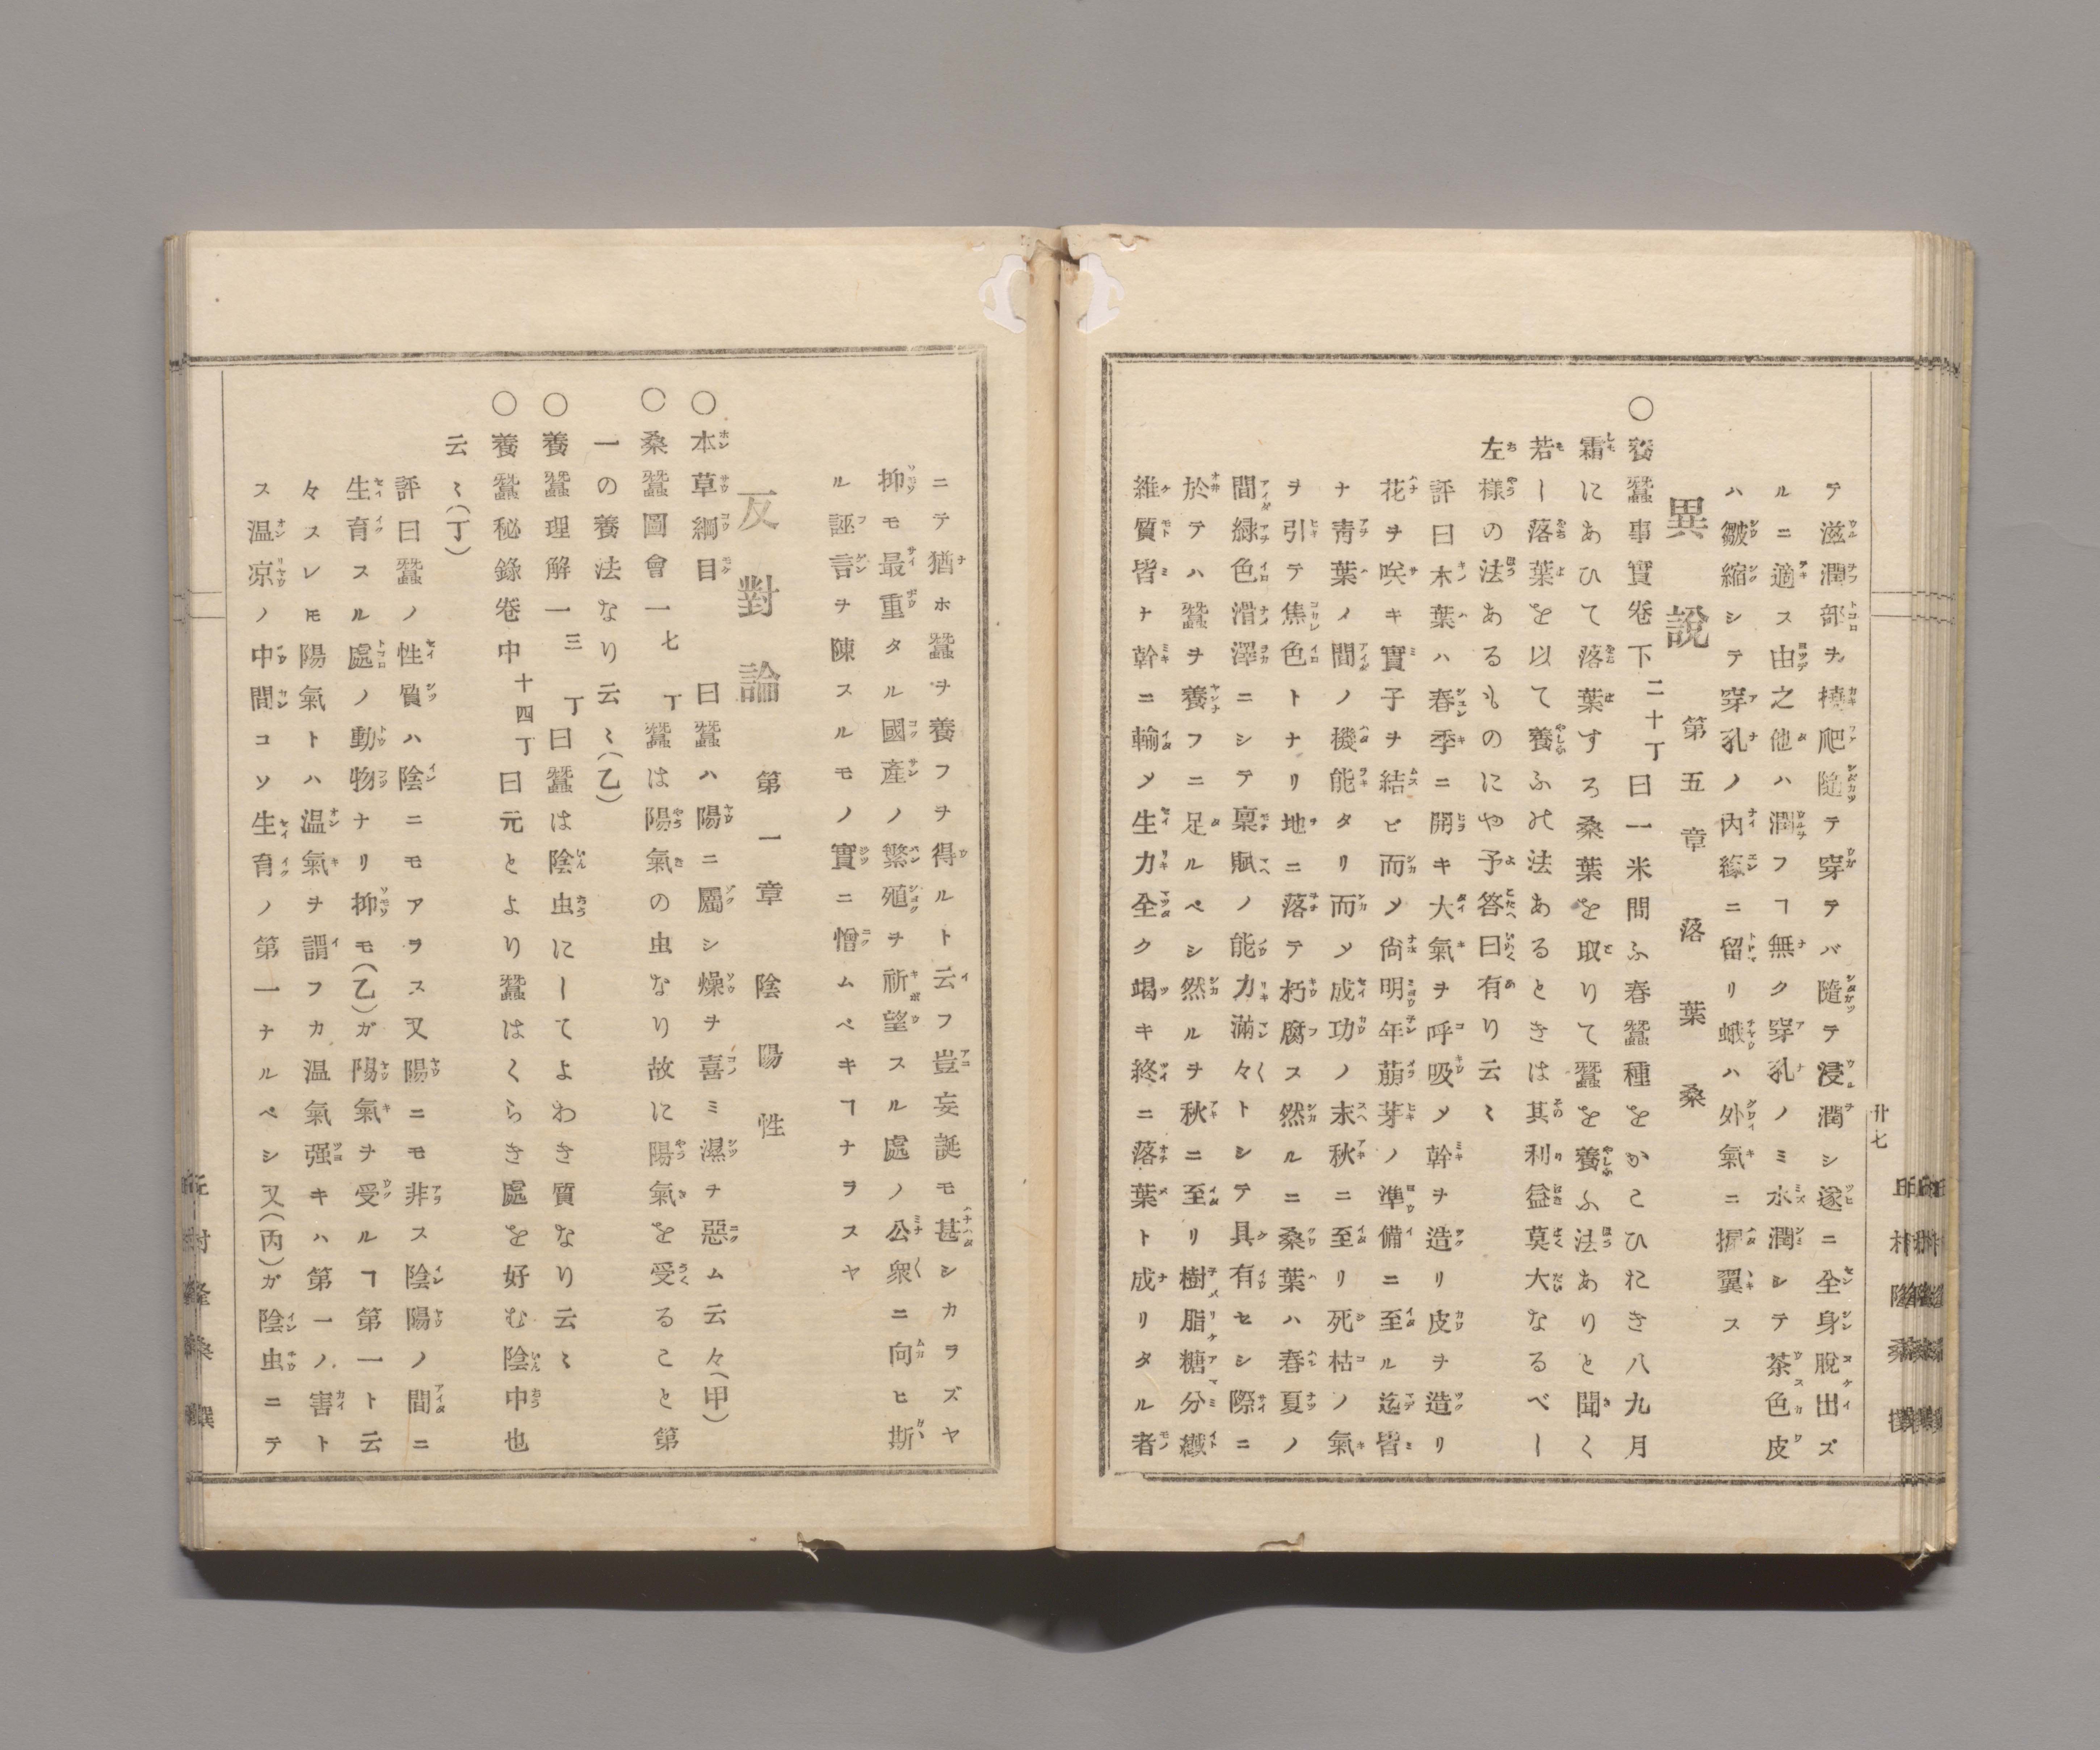 テ滋潤部ヲ橈爬隨テ穿テバ隨テ浸潤シ遂ニ全身脫出ズ
ルニ適ス由之他ハ潤フヿ無ク穿孔ノミ水潤シテ茶色皮
ハ皺縮シテ穿孔ノ內緣ニ留リ蛾ハ外氣ニ擢翼ス
異說 第五章 落葉桑
〇養蠶事實卷下二十丁曰一米問ふ春蠶種をかこひおき八九月
霜にあひて落葉すろ桑葉を取りて蠶を養ふ法ありと聞く
若し落葉を以て養ふの法あるときは其利益莫大なるべし
左樣の法あるものにや予答曰有り云〻
評曰木葉ハ春季ニ開キ大氣ヲ呼吸メ幹ヲ造リ皮ヲ造リ
花ヲ咲キ實子ヲ結ビ而メ尙明年萠芽ノ準備ニ至ル迄皆
ナ靑葉ノ間ノ機能タリ而メ成功ノ末秋ニ至リ死枯ノ氣
ヲ引テ焦色トナリ地ニ落テ朽腐ス然ルニ桑葉ハ春夏ノ
間綠色滑澤ニシテ稟賦ノ能力滿々トシテ具有セシ際ニ
於テハ蠶ヲ養フニ足ルペシ然ルヲ秋ニ至リ樹脂糖分纖
維質皆ナ幹ニ輸メ生力全ク竭キ終ニ落葉ト成リタル者
廿七
ニテ猶ホ蠶ヲ養フヲ得ルト云フ豈妄誕モ甚シカヲズヤ
抑モ最重タル國產ノ繁殖ヲ祈望スル處ノ公衆ニ向ヒ斯
ル誣言ヲ陳スルモノノ實ニ憎ムベキヿナヲスヤ
反對論 第一章 陰陽性
〇本草綱目曰蠶ハ陽ニ屬シ燥ヲ喜ミ濕ヲ惡ム云々(甲)
〇桑蠶圖會一七丁蠶は陽氣の虫なり故に陽氣を受ること第
一の養法なり云〻(乙)
〇養蠶理解一三丁曰蠶は陰虫にしてよわき質なり云〻
〇養蠶秘錄卷中十四丁曰元とより蠶はくらき處を好む陰中也
云〻(丁)
評曰蠶ノ性質ハ陰ニモアヲス又陽ニモ非ス陰陽ノ間ニ
生育スル處ノ動物ナリ抑モ(乙)ガ陽氣ヲ受ルヿ第一ト云
々スレモ陽氣トハ温氣ヲ謂フカ温氣强キハ第一ノ害ト
ス温凉ノ中間コソ生育ノ第一ナルペシ又(丙)ガ陰虫ニテ